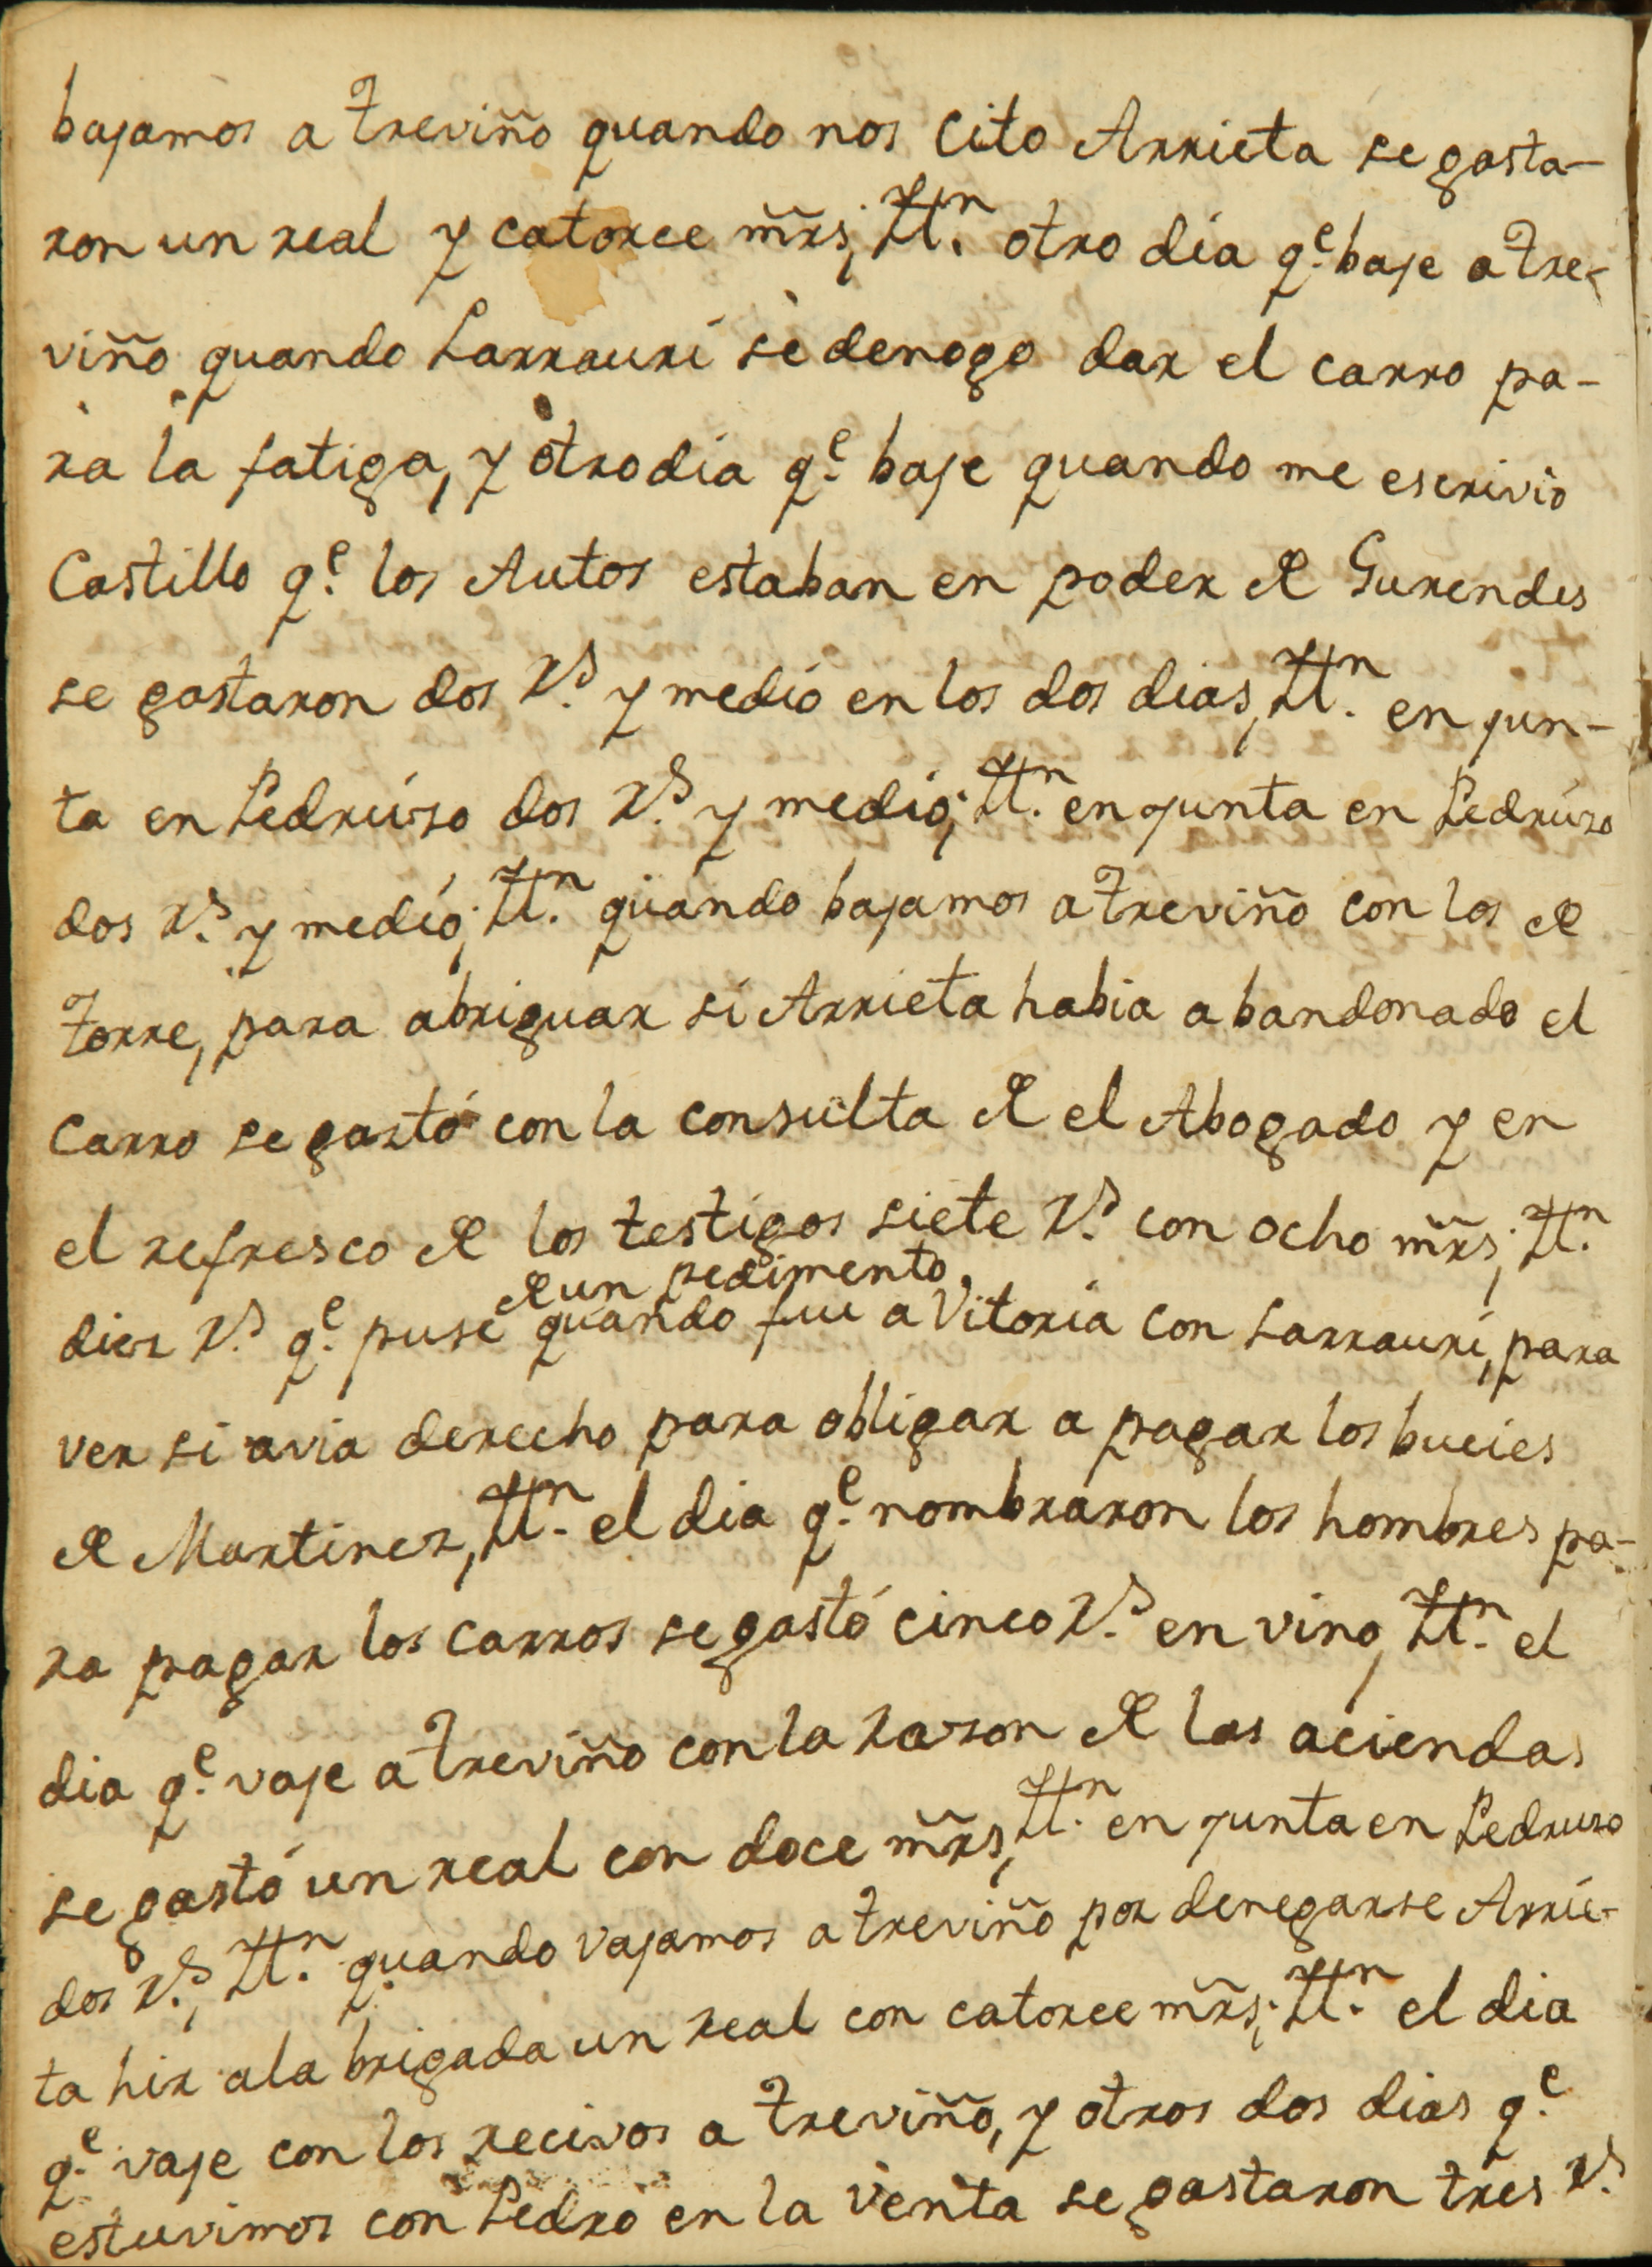 bajamos a Treviño quando nos Cito Arrieta se gasta-
ron un real y catorce mr̃s, Ytt.n otro dia q.e baje a Tre-
viño quando Larrauri se denogo dar el carro pa-
ra la fatiga, y otro dia q.e baje quando me escrivio
Castillo q.e los Autos estaban en poder de Gurendes
se gastaron dos r.s y medio en los dos dias, Ytt.n en jun-
ta en Pedruzo dos r.s y medio; Ytt.n en junta en Pedruzo
dos r.s y medio; Ytt.n quando bajamos a Treviño con los de
Torre, para abriguar si Arrieta habia abandonado el
Carro se gastó con la consulta de el Abogado y en
el refresco de los testigos siete r.s con ocho mr̃s; Ytt.n
de un pedimento,
diez r.s q.e puse quando fui a Vitoria con Larrauri, para
ver si avia derecho para obligar a pagar los bueies
de Martinez, Ytt.n el dia q.e nombraron los hombres pa-
ra pagar los carros se gastó cinco r.s en vino, Ytt.n el
dia q.e vaje a Treviño con la razon de las aciendas
se gastó un real con doce mr̃s, Ytt.n en junta en Pedruzo
dos r.s, Ytt.n quando vajamos a Treviño por denegarse Arrie-
ta hir a la brigada un real con catorce mr̃s; Ytt.n el dia
q.e vaje con los recivos a Treviño, y otros dos dias q.e
estuvimos con Pedro en la Venta se gastaron tres r.s